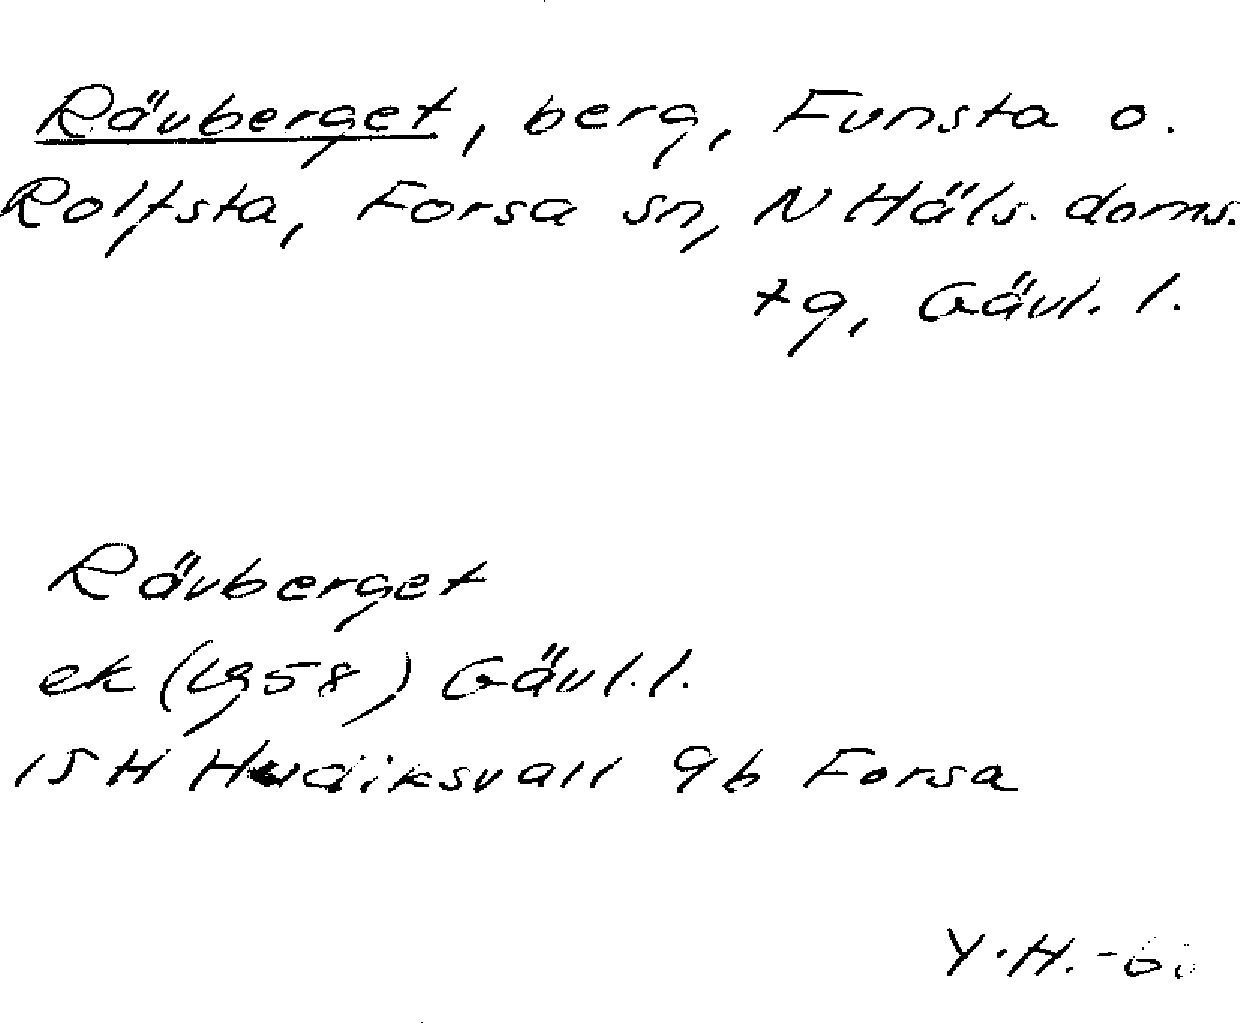 Rävberget, berg, Funsta o.
Rolfsta, Forsa sn, N Häls. doms.
tg, Gävl. l.
Rävberget
ek (1958) Gävl. l.
15 H Hudiksvall 9b Forsa
Y. H.